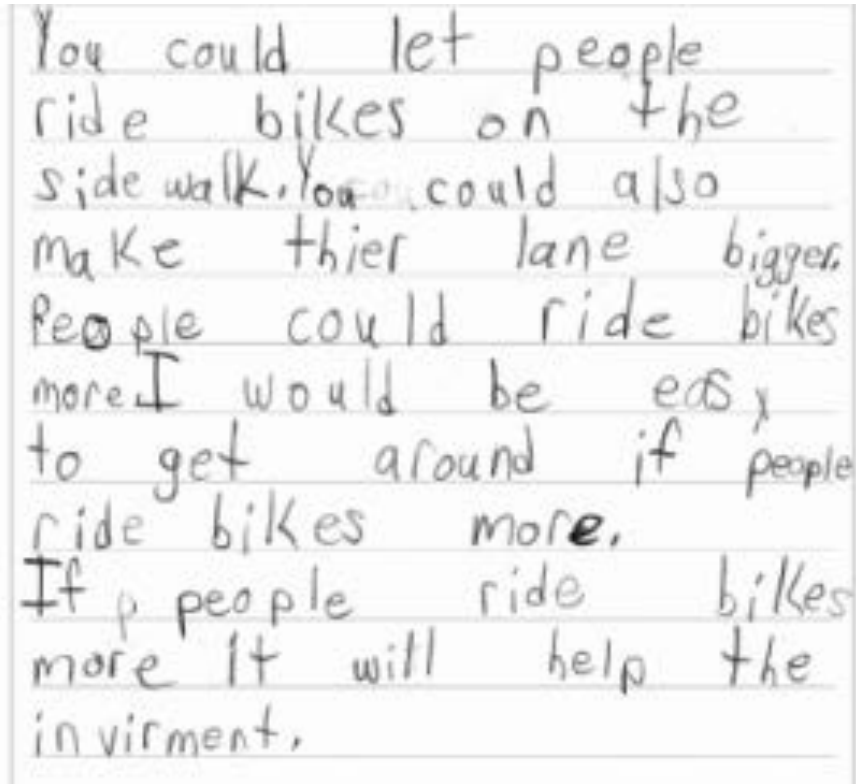 You could let people
ride bikes on the
side walk. You could also
make thier lane bigger.
People could ride bikes
more. I would be easy
to get around if people
ride bikes more.
If p people ride bikes
more it will help the
invirment.